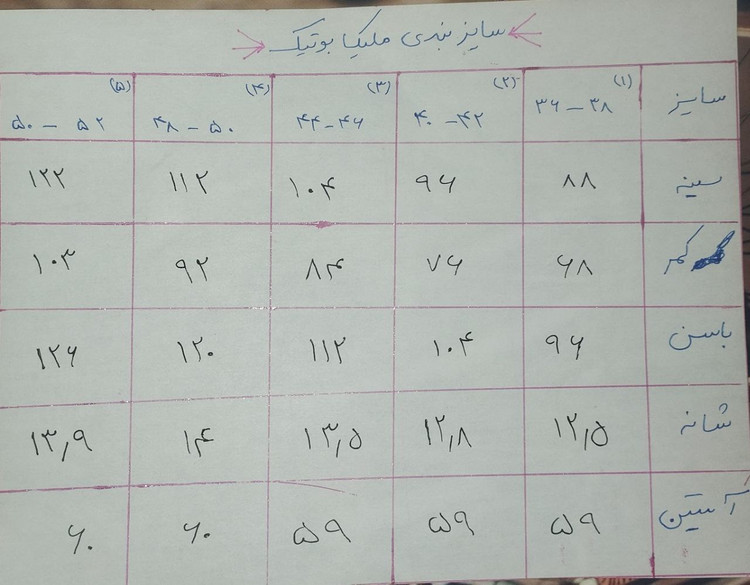 سایزبندی ملیکا بوتیک
سایز (۱) ۳۶-۳۸ (۲) ۴۰-۴۲ (۳) ۴۴-۴۶ (۴) ۴۸-۵۰ (۵) ۵۰-۵۲
سینه ۸۸ ۹۶ ۱۰۴ ۱۱۲ ۱۲۲
کمر ۶۸ ۷۶ ۸۴ ۹۲ ۱۰۳
باسن ۹۶ ۱۰۴ ۱۱۲ ۱۲۰ ۱۲۶
شانه ۱۲,۵ ۱۲,۸ ۱۳,۵ ۱۴ ۱۳,۹
آستین ۵۹ ۵۹ ۵۹ ۶۰ ۶۰